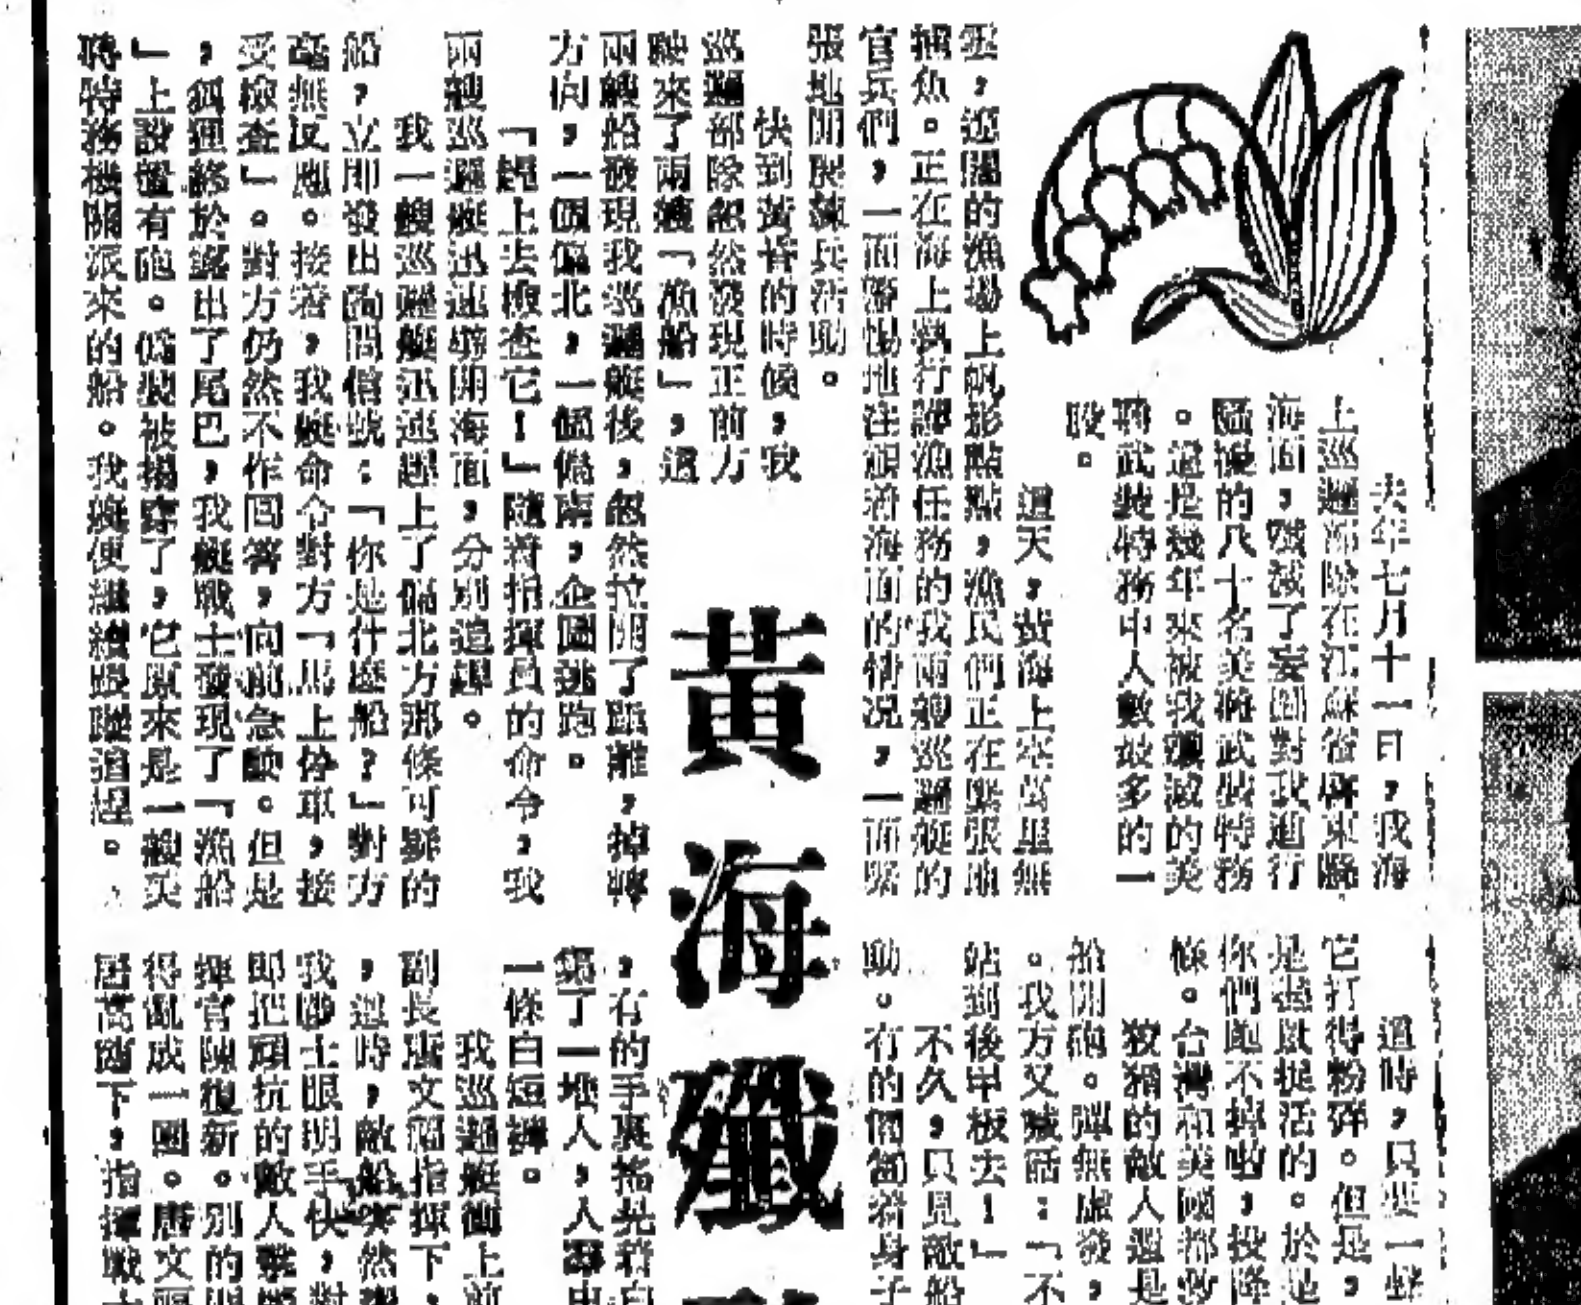 黃海殲
去年七月十一日，我海
上巡邏部隊在江蘇省啓東縣
海面，殲滅了妄圖對我進行
騷擾的八十名美蔣武裝特務
。這是幾年來被我殲滅的美
蔣武裝特務中人數最多的一
股。
這天，黃海上空萬里無
雲，遼闊的漁場上帆影點點，漁民們正在緊張地
捕魚。正在海上執行護漁任務的我兩艘巡邏艇的
官兵們，一面警惕地注視着海面的情況，一面緊
張地開展練兵活動。
快到黃昏的時候，我
巡邏部隊忽然發現正前方
駛來了兩艘「漁船」，這
兩艘船發現我巡邏艇後，忽然拉開了距離，掉轉
方向，一個偏北，一個偏南，企圖逃跑。
「趕上去檢查它！」隨着指揮員的命令，我
兩艘巡邏艇迅速劈開海面，分別追趕。
我一艘巡邏艇迅速趕上了偏北方那條可疑的
船，立即發出詢問信號：「你是什麼船？」對方
毫無反應。接着，我艇命令對方「馬上停車，接
受檢查」。對方仍然不作回答，向前急駛。但是
，狐狸終於露出了尾巴，我艇戰士發現了「漁船
」上設置有砲。僞裝被揭穿了，它原來是一艘美
蔣特務機關派來的船。我艇便繼續跟蹤追趕。
這時，只要一聲
它打得粉碎。但是，
是盡量捉活的。於是
你們跑不掉啦，投降
條。台灣和美國都救
狡猾的敵人還是
船開砲。彈無虛發，
。我方又喊話：「不
站到後甲板去！」
不久，只見敵船
動。有的個縮着身子
，有的手裏搖晃着白
擠了一堆人，人羣中
一條白短褲。
我巡邏艇衝上前
副長唐文福指揮下，
，這時，敵船突然
我戰士眼明手快，對
即把頑抗的敵人擊斃
揮官陳復新。別的
得亂成一團。唐文福
居高臨下，指揮戰士